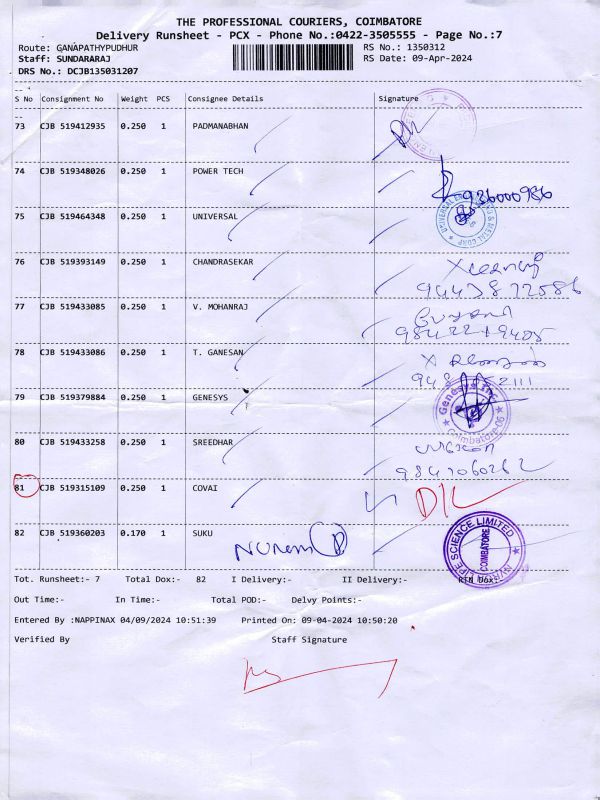 THE PROFESSIONAL COURIERS, COIMBATORE
Delivery Runsheet - PCX - Phone No.:0422-3505555 - Page No.:7
Route: GANAPATHYPUDHUR
RS No.: 1350312
Staff: SUNDARARAJ
RS Date: 09-Apr-2024
DRS No.: DCJB135031207
S No Consignment No Weight PCS Consignee Details Signature
73 CJB 519412935 0.250 1 PADMANABHAN
74 CJB 519348026 0.250 1 POWER TECH
936000986
75 CJB 519464348 0.250 1 UNIVERSAL
76 CJB 519393149 0.250 1 CHANDRASEKAR
9443872586
77 CJB 519433085 0.250 1 V. MOHANRAJ
9842219405
78 CJB 519433086 0.250 1 T. GANESAN
79 CJB 519379884 0.250 1 GENESYS
Genesys Inc. Coimbatore-06
80 CJB 519433258 0.250 1 SREEDHAR
9841060262
81 CJB 519315109 0.250 1 COVAI
82 CJB 519360203 0.170 1 SUKU
LIFE SCIENCE LIMITED
COIMBATORE
Tot. Runsheet:- 7 Total Dox:- 82 I Delivery:- II Delivery:- RTN Dox:-
Out Time:- In Time:- Total POD:- Delvy Points:-
Entered By :NAPPINAX 04/09/2024 10:51:39 Printed On: 09-04-2024 10:50:20
Verified By Staff Signature